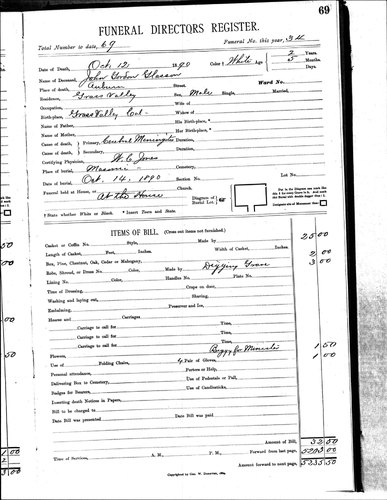 69
FUNERAL DIRECTORS REGISTER.
Total Number to date, 69 Funeral No. this year, 34
Date of Death, Oct 12 1890 Color † White Age 2 Years.
5 Months.
Days.
Name of Deceased, John Gordon
Place of death, Auburn Street. Ward No.
Residence, Grass Valley Sex, Male Single, Married.
Occupation, Wife of
Birth-place, Grass Valley Cal Widow of
Name of Father, His Birth-place, *
Name of Mother, Her Birth-place, *
Cause of death, Primary, Duration,
Cause of death, Secondary, Duration,
Certifying Physician, W. C. Jones
Place of burial, Masonic Cemetery,
Date of burial, Oct. 14, 1890 Section No. Lot No.
Funeral held at Home, or At the House Church.
Diagram of Burial Lot.
† State whether White or Black. * Insert Town and State.
ITEMS OF BILL. (Cross out items not furnished.)
Casket or Coffin No. Style, Made by 25 00
Length of Casket, Feet, Inches. Width of Casket, Inches. 2 00
Box, Pine, Chestnut, Oak, Cedar or Mahogany. Digging Grave 3 00
Robe, Shroud, or Dress No. Color, Made by
Lining No. Color, Handles No. Plate No.
Time of Dressing, Crape on door,
Washing and laying out, Shaving,
Embalming, Preserver and Ice,
Hearse and Carriages.
Carriage to call for Time,
Carriage to call for Time,
Carriage to call for Time,
Flowers, Buggy for Minister 1 50
Use of Folding Chairs, 4 Pair of Gloves, 1 00
Personal attendance, Porters or Help,
Delivering Box to Cemetery, Use of Pedestals or Pall,
Badges for Bearers, Use of Candlesticks,
Inserting death Notices in Papers,
Bill to be charged to
Date Bill was presented Date Bill was paid
Amount of Bill, 32 50
Time of Services, A. M., P. M., Forward from last page,
Amount forward to next page, 5235 50